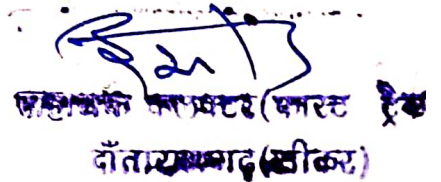 सहायक कलक्टर (फास्ट ट्रेक
दाँतारामगढ़ (सीकर)